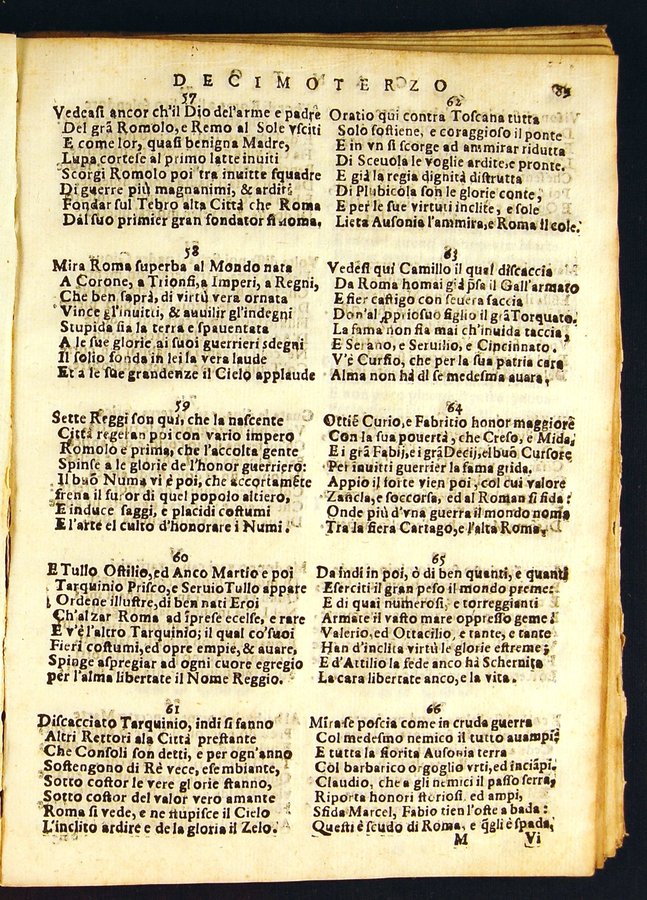 DECIMOTERZO
89
57
Vedeasi ancor ch'il Dio del'arme e padre
Del grã Romolo, e Remo al Sole vsciti
E come lor, quasi benigna Madre,
Lupa cortese al primo latte inuiti
Scorgi Romolo poi tra inuitte squadre
Di guerre più magnanimi, & arditi
Fondar sul Tebro alta Città che Roma
Dal suo primier gran fondator si noma.
58
Mira Roma superba al Mondo nata
A Corone, a Trionfi, a Imperi, a Regni,
Che ben saprà, di virtù vera ornata
Vince gl'inuitti, & auuilir gl'indegni
Stupida sia la terra e spauentata
A le sue glorie ai suoi guerrieri sdegni
Il solio fonda in lei la vera laude
Et a le sue grandenze il Cielo applaude
59
Sette Reggi son qui, che la nascente
Città regeran poi con vario impero
Romolo e prima, che l'accolta gente
Spinse a le glorie de l'honor guerriero:
Il buõ Numa vi è poi, che accortamẽte
frena il furor di quel popolo altiero,
E induce saggi, e placidi costumi
E l'arte el culto d'honorare i Numi.
60
E Tullo Ostilio, ed Anco Martio e poi
Tarquinio Prisco, e Seruio Tullo appare
Ordene illustre, di ben nati Eroi
Ch'alzar Roma ad ĩprese ecelse, e rare
E v'è l'altro Tarquinio; il qual co'suoi
Fieri costumi, ed opre empie, & auare,
Spinge aspregiar ad ogni cuore egregio
per l'alma libertate il Nome Reggio.
61
Discacciato Tarquinio, indi si fanno
Altri Rettori ala Città prestante
Che Consoli son detti, e per ogn'anno
Sostengono di Rè vece, e sembiante,
Sotto costor le vere glorie stanno,
Sotto costor del valor vero amante
Roma si vede, e ne stupisce il Cielo
L'inclito ardire e de la gloria il Zelo.
62
Oratio qui contra Toscana tutta
Solo sostiene, e coraggioso il ponte
E in vn si scorge ad ammirar ridutta
Di Sceuola le voglie ardite, e pronte.
E già la regia dignità distrutta
Di Plubicola son le glorie conte,
E per le sue virtuti inclite, e sole
Lieta Ausonia l'ammira, e Roma il cole.
63
Vedesi qui Camillo il qual discaccia
Da Roma homai già p̃sa il Gall'armato
E fier castigo con seuera faccia
Don'al ppriosuo figlio il grã Torquato.
La fama non fia mai ch'inuida taccia,
E Serano, e Seruilio, e Cincinnato.
V'è Cursio, che per la sua patria cara
Alma non hà di se medesma auara,
64
Ottiẽ Curio, e Fabritio honor maggiore
Con la sua pouertà, che Creso, e Mida,
E i grã Fabij, e i grã Decij, el buõ Cursore
Per inuitti guerrier la fama grida.
Appio il forte vien poi, col cui valore
Zancla, e soccorsa, ed al Roman si fida:
Onde più d'vna guerra il mondo noma
Tra la fiera Cartago, e l'alta Roma,
65
Da indi in poi, ò di ben quanti, e quanti
Eserciti il gran peso il mondo preme:
E di quai numerosi, e torreggianti
Armate il vasto mare oppresso geme:
Valerio, ed Ottacilio, e tante, e tanto
Han d'inclita virtù le glorie estreme;
E d'Attilio la fede anco hà Schernita
La cara libertate anco, e la vita.
66
Mirase poscia come in cruda guerra
Col medesmo nemico il tutto auampi:
E tutta la fiorita Ausonia terra
Col barbarico orgoglio vrti, ed inciãpi.
Claudio, che a gli nemici il passo serra,
Riporta honori gloriosi, ed ampi,
Sfida Marcel, Fabio tien l'oste a bada:
Questi è scudo di Roma, e q̃gli è spada,
M Vi